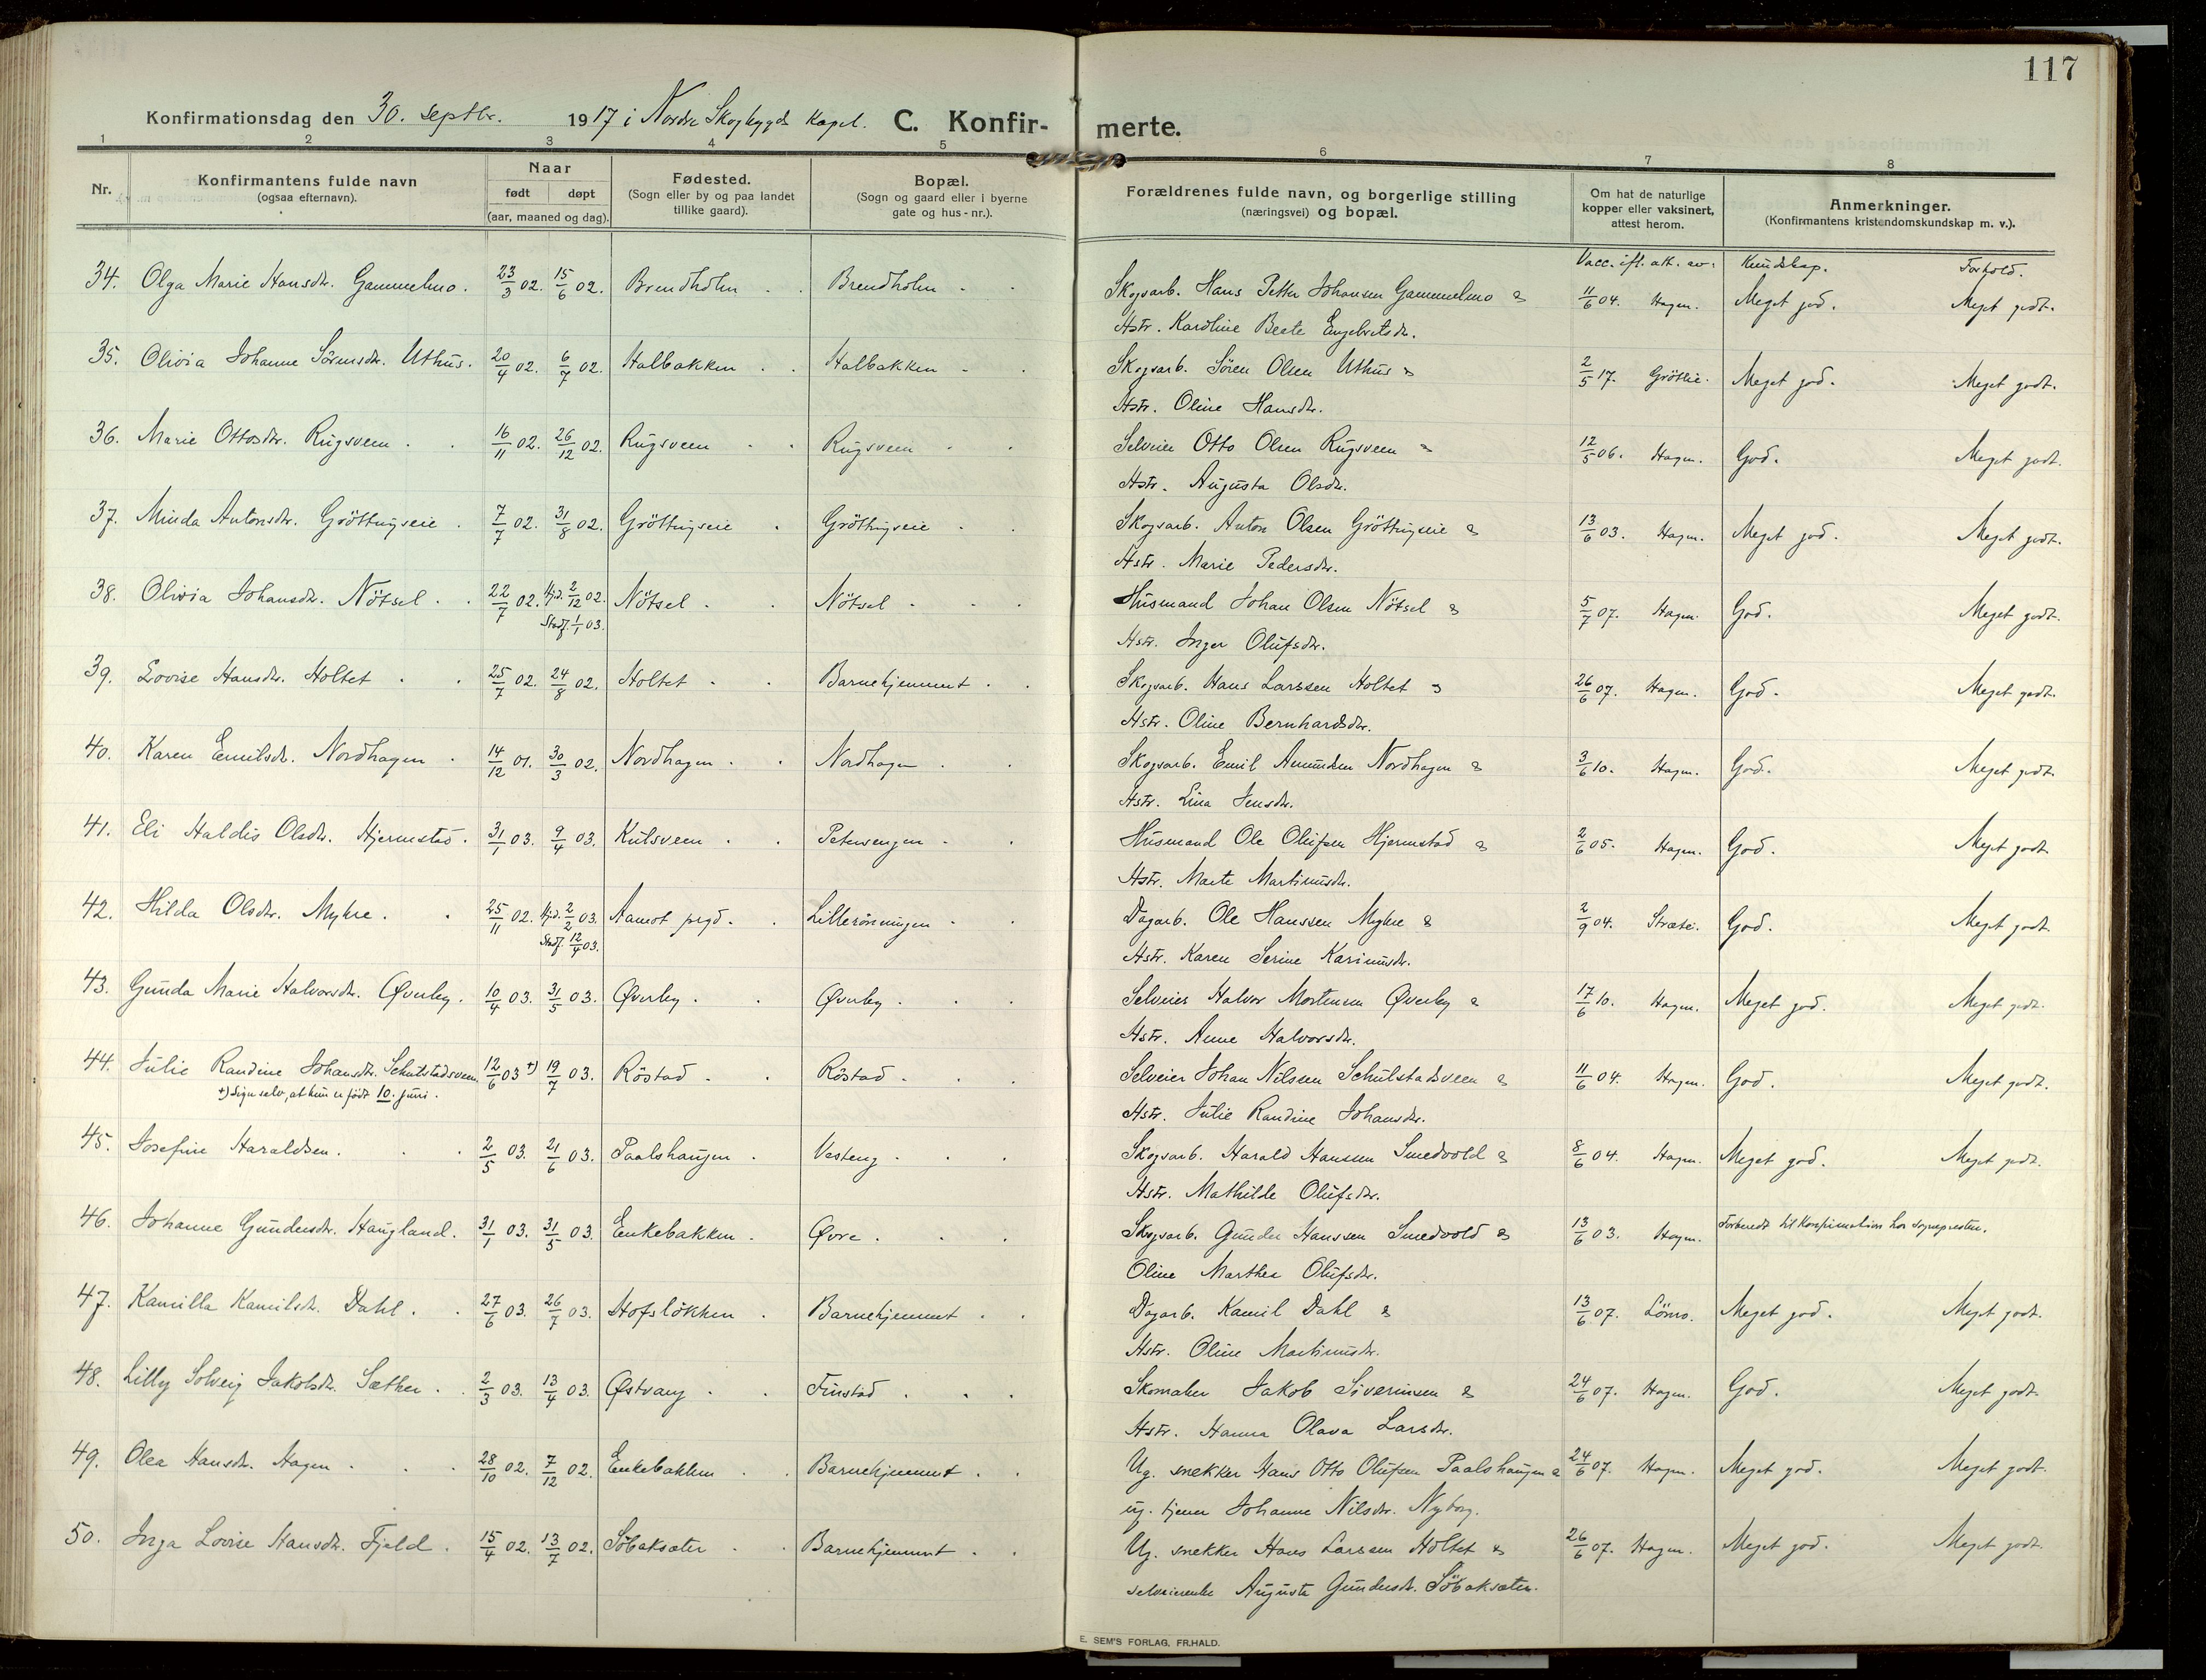 117
Konfirmationsdag den 30. septbr. 1917 i Nordre Skogbygds kapel. C. Konfir- merte.
1 2 3 4 5 6 7 8
Nr. Konfirmantens fulde navn (ogsaa efternavn). Naar født døpt (aar, maaned og dag). Fødested. (Sogn eller by og paa landet tillike gaard). Bopæl. (Sogn og gaard eller i byerne gate og hus-nr.). Forældrenes fulde navn, og borgerlige stilling (næringsvei) og bopæl. Om hat de naturlige kopper eller vaksinert, attest herom. Anmerkninger. (Konfirmantens kristendomskundskap m. v.).
Vacc. ifl. att. av: Kundskap. Forhold.
34. Olga Marie Hansdtr. Gammelmo. 23/3 02. 15/6 02. Brendholm Brendholm Skogsarb. Hans Petter Johansen Gammelmo & 11/6 04. Hagen. Meget god. Meget godt.
Hstr. Karoline Beate Engebretsdtr.
35. Olivia Johanne Sørensdtr. Uthus. 20/4 02. 6/7 02. Halbakken Halbakken Skogsarb. Søren Olsen Uthus & 2/5 17. Grøttie. Meget god. Meget godt.
Hstr. Oline Hansdtr.
36. Marie Ottosdtr. Rugsveen 16/11 02. 26/12 02. Rugsveen Rugsveen Selveier Otto Olsen Rugsveen & 12/5 06. Hagen. God. Meget godt.
Hstr. Augusta Olsdtr.
37. Minda Antonsdtr. Grøttingseie 7/7 02. 31/8 02. Grøttingseie Grøttingseie Skogsarb. Anton Olsen Grøttingseie & 13/6 03. Hagen. Meget god. Meget godt.
Hstr. Marie Pedersdtr.
38. Olivia Johansdtr. Nötsel 22/7 02. Hjd. 2/12 02. Stadf. 1/1 03. Nötsel Nötsel Husmand Johan Olsen Nötsel & 5/7 07. Hagen. God. Meget godt.
Hstr. Inger Olufsdtr.
39. Lovise Hansdtr. Holtet 25/7 02. 24/8 02. Holtet Barnehjemmet Skogsarb. Hans Larssen Holtet & 26/6 07. Hagen. God. Meget godt.
Hstr. Oline Bernhardsdtr.
40. Karen Emilsdtr. Nordhagen 14/12 01. 30/3 02. Nordhagen Nordhagen Skogsarb. Emil Amundsen Nordhagen & 3/6 10. Hagen. God. Meget godt.
Hstr. Lina Jensdtr.
41. Eli Haldis Olsdtr. Hjermstad. 31/1 03. 9/4 03. Kulsveen Petersengen Husmand Ole Olufsen Hjermstad & 2/6 05. Hagen. God. Meget godt.
Hstr. Marte Martinusdtr.
42. Hilda Olsdtr. Myhre. 25/11 02. Hjd. 2/2 03. Stadf. 12/4 03. Aamot prgd. Lillerönningen Dagarb. Ole Hanssen Myhre & 2/9 04. Stræte. God. Meget godt.
Hstr. Karen Serine Karinusdtr.
43. Gunda Marie Halvorsdtr. Øverby. 10/4 03. 31/5 03. Øverby. Øverby. Selveier Halvor Mortensen Øverby & 17/6 10. Hagen. Meget god. Meget godt.
Hstr. Anne Halvorsdtr.
44. Julie Randine Johansdtr. Schulstadsveen 12/6 03 +) 19/7 03. Röstad Röstad Selveier Johan Nilssen Schulstadsveen & 11/6 04. Hagen. God. Meget godt.
+) Siger selv, at hun er født 10. juni. Hstr. Julie Randine Johansdtr.
45. Josefine Haraldsen. 2/5 03. 21/6 03. Paalshaugen Vesteng Skogsarb. Harald Hanssen Smedvold & 8/6 04. Hagen. Meget god. Meget godt.
Hstr. Mathilde Olufsdtr.
46. Johanne Gundersdtr. Haugland. 31/1 03. 31/5 03. Enkebakken Øvre Skogsarb. Gunder Hanssen Smedvold & 13/6 03. Hagen. Forberedt til konfirmation hos sognepresten.
Oline Marthea Olufsdtr.
47. Kamilla Kamilsdtr. Dahl. 27/6 03. 26/7 03. Hofslökken Barnehjemmet Dagarb. Kamil Dahl & 13/6 07. Lömo. Meget god. Meget godt.
Hstr. Oline Martinusdtr.
48. Lilly Solveig Jakobsdtr. Sæther. 2/3 03. 13/4 03. Østvang Finstad Skomaker Jakob Siverinsen & 24/6 07. Hagen. God. Meget godt.
Hstr. Hanna Olava Larsdtr.
49. Olea Hansdtr. Hagen 28/10 02. 7/12 02. Enkebakken Barnehjemmet Ug. snekker Hans Otto Olufsen Paalshaugen & 24/6 07. Hagen. Meget god. Meget godt.
ug. tjener Johanne Nilsdtr. Nyborg.
50. Inga Lovise Hansdtr. Fjeld. 15/4 02. 13/7 02. Söbaksæter Barnehjemmet Ug. snekker Hans Larssen Holtet & 26/6 07. Hagen. Meget god. Meget godt.
selveierenke Augusta Gundersdtr. Söbaksæter.
E. SEM'S FORLAG, FR.HALD.